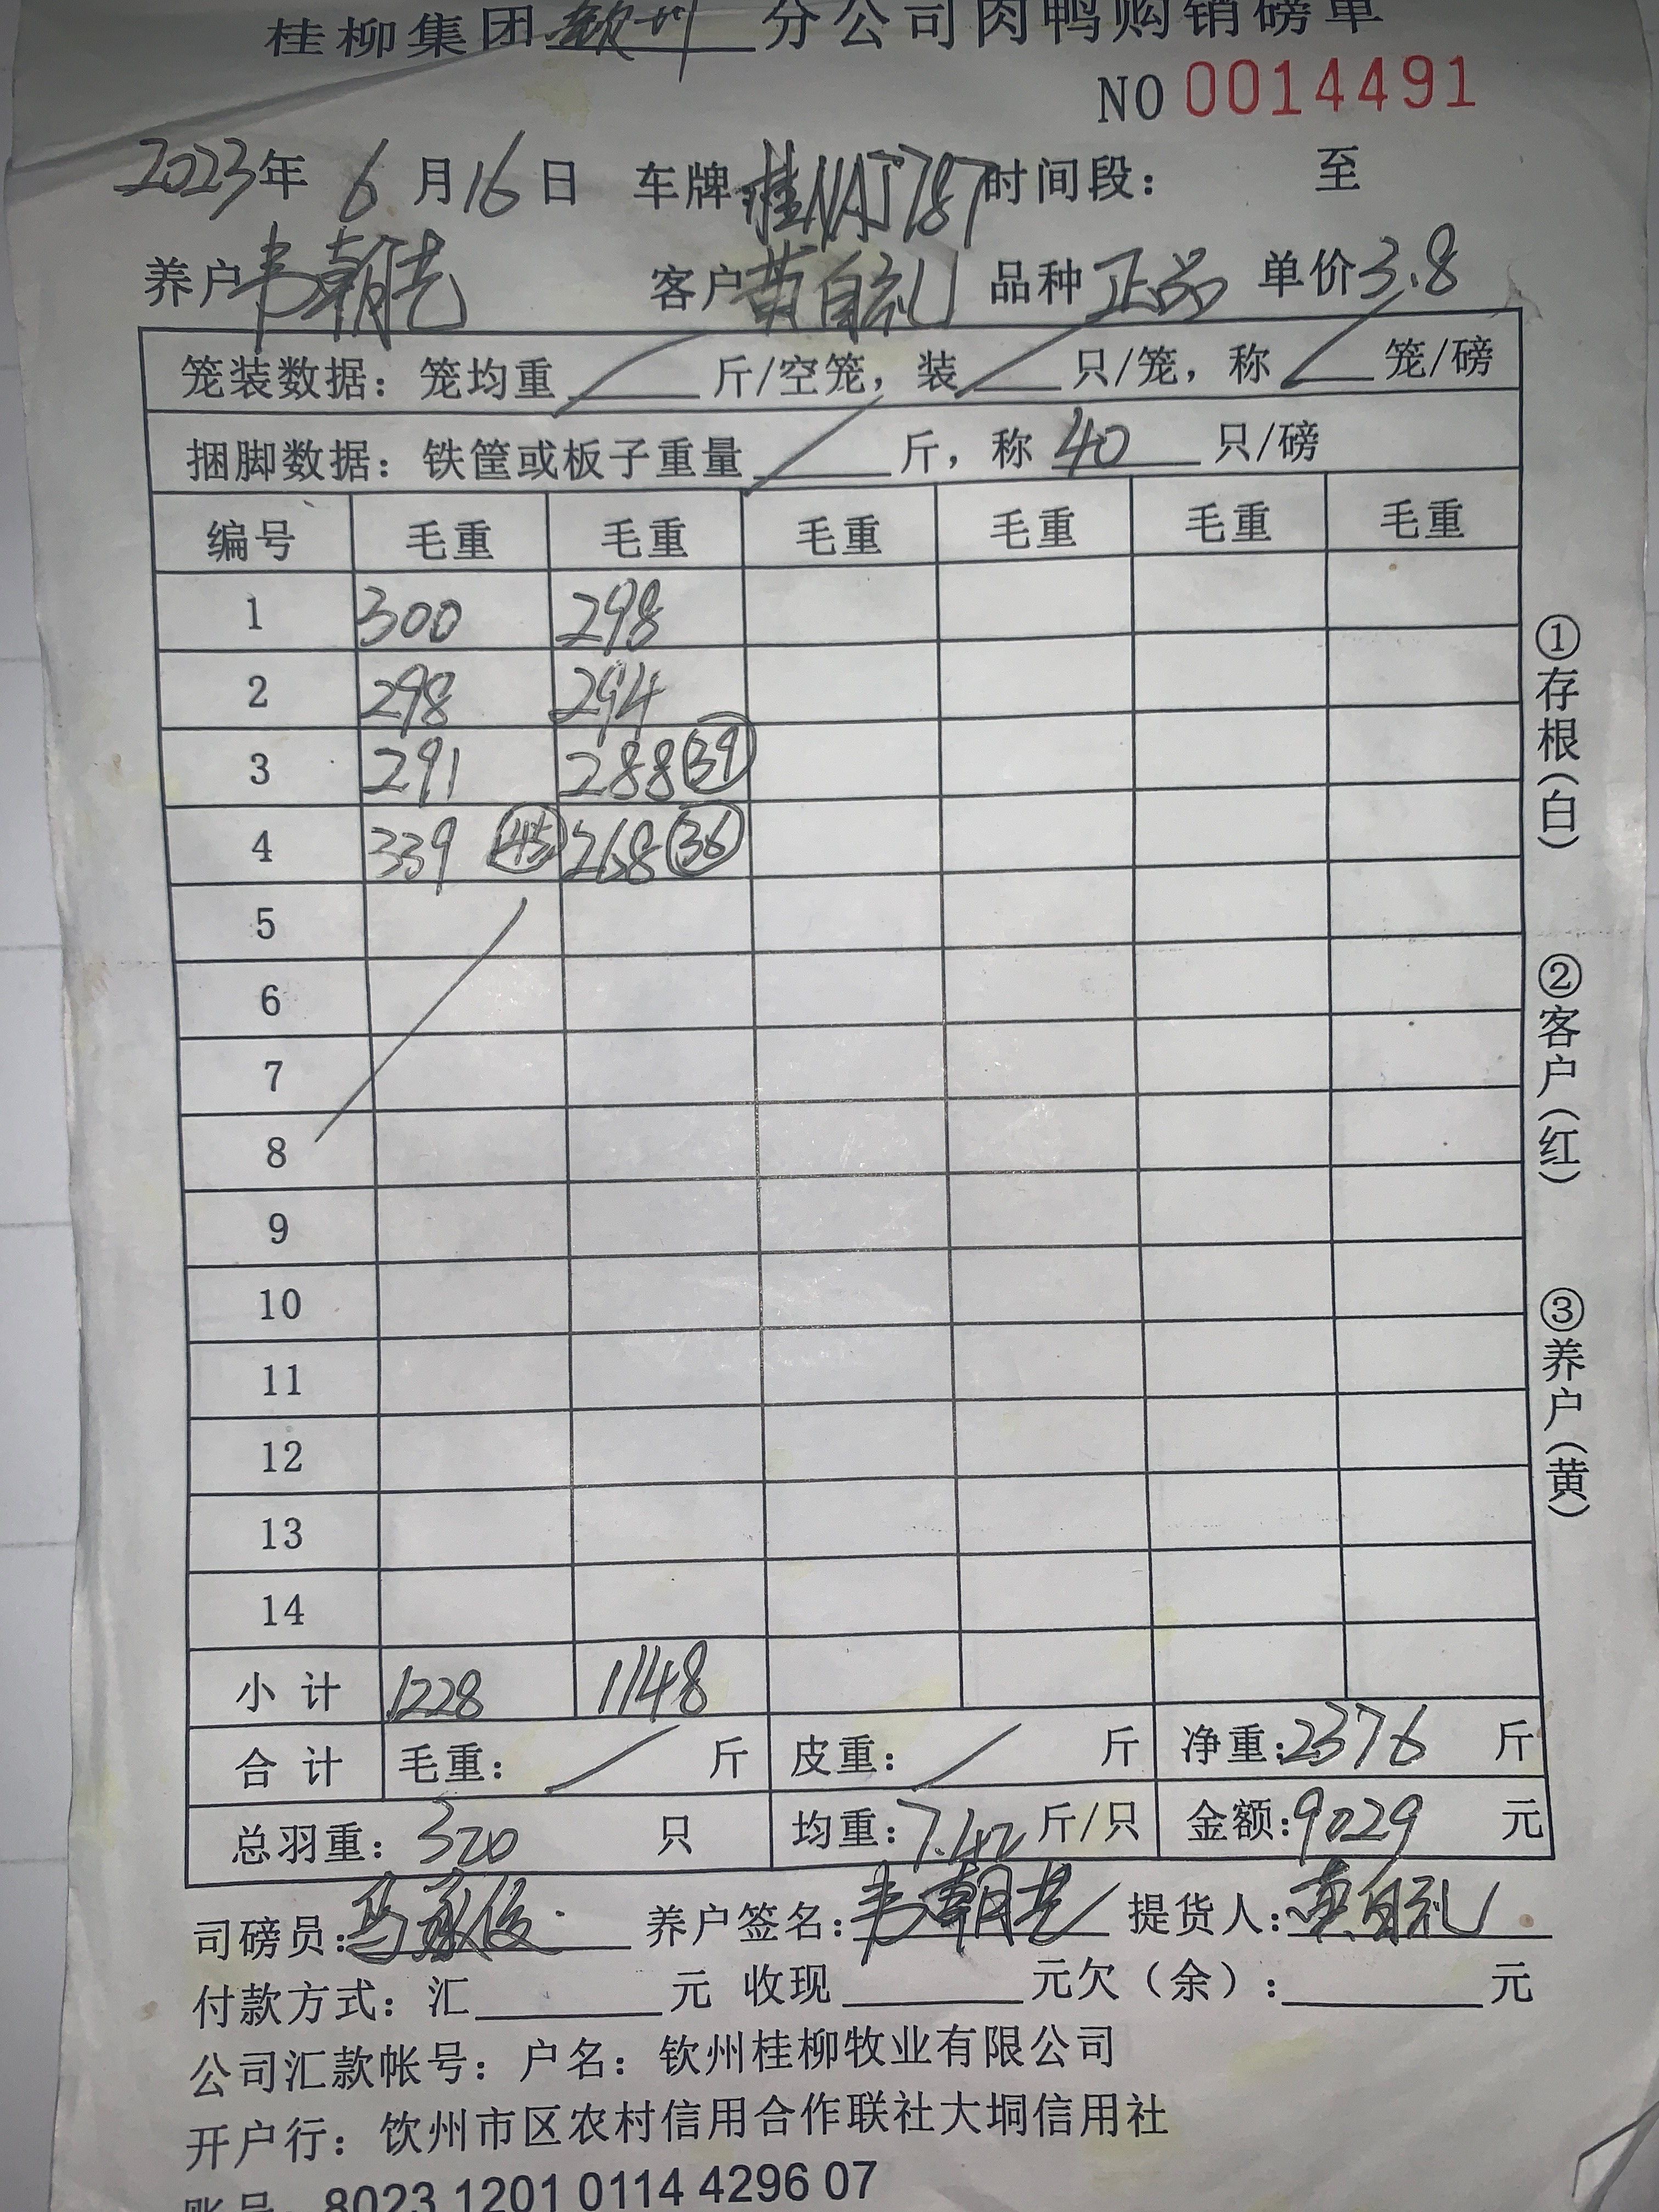 桂柳集团钦州分公司肉鸭购销磅单
NO 0014491
2023年 6 月 16 日 车牌:桂NAJ787 时间段: 至
养户 韦朝 客户 黄自礼 品种 正品 单价 3.8
笼装数据: 笼均重 / 斤/空笼, 装 / 只/笼, 称 / 笼/磅
捆脚数据: 铁筐或板子重量 / 斤, 称 40 只/磅
编号 毛重 毛重 毛重 毛重 毛重 毛重
1 300 298
2 298 294
3 291 288 (39)
4 339 (45) 268 (36)
5
6
7
8
9
10
11
12
13
14
小计 1228 1148
合计 毛重: / 斤 皮重: / 斤 净重:2376 斤
总羽重: 320 只 均重:7.42 斤/只 金额:9029 元
司磅员: 养户签名:韦朝 提货人:黄自礼
付款方式: 汇 元 收现 元欠(余): 元
公司汇款帐号: 户名: 钦州桂柳牧业有限公司
开户行: 钦州市区农村信用合作联社大垌信用社
账号: 8023 1201 0114 4296 07
①存根(白)
②客户(红)
③养户(黄)